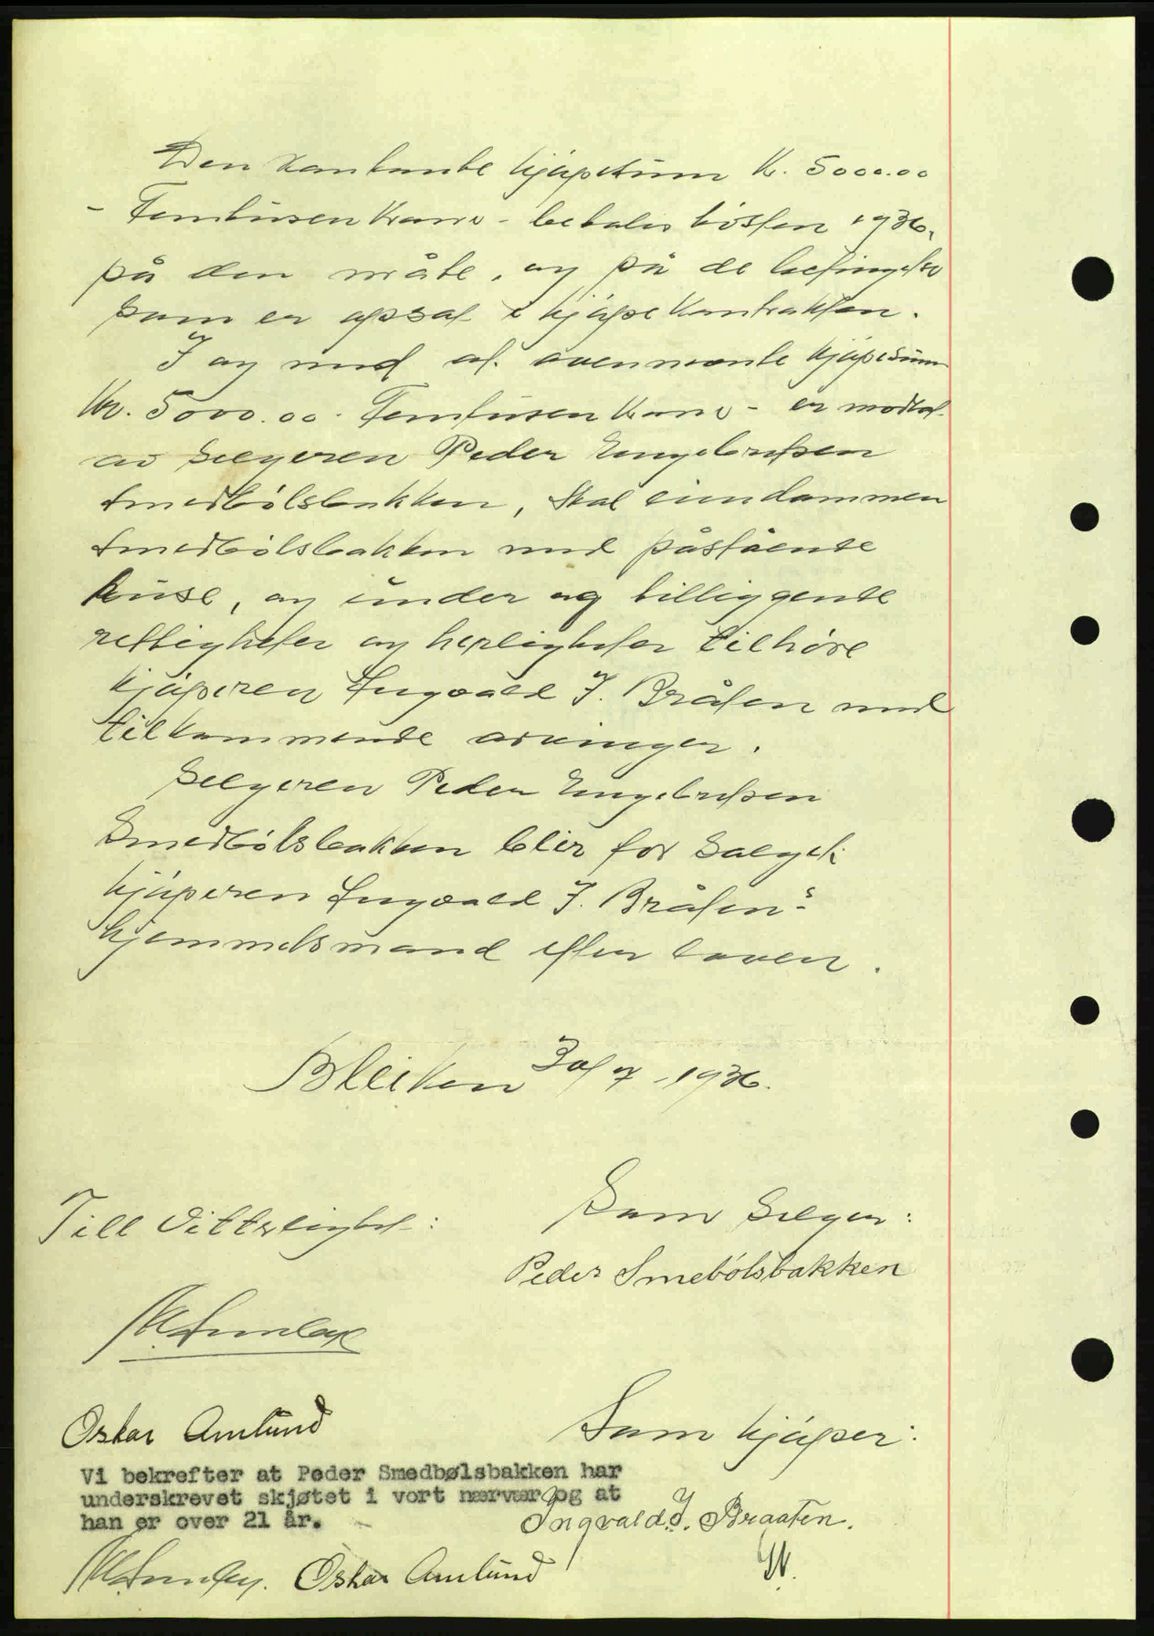 Den kontante kjøpesum Kr. 5000.00
- Femtusen Kroner - betales høsten 1936,
på den måte, og på de betingelse
som er opsat i kjøpekontrakten.
I og med at. ovennevnte kjøpesum
Kr. 5000.00. Femtusen Kroner - er modtat
av selgeren Peder Engebretsen
Smedbølsbakken, skal eiendommen
Smedbølsbakken med påstående
huse, og under og tilliggende
rettigheter og herligheter tilhøre
kjøperen Ingvald J. Bråten med
tilkommende arvinger.
Selgeren Peder Engebretsen
Smedbølsbakken blir for salget
kjøperen Ingvald J. Bråten's
hjemmelsmand efter loven.
Bleiken 30/7 - 1936.
Till Vitterlighet:
Som Selger:
Peder Smebølsbakken
Oskar Amlund
Som kjøper:
Vi bekrefter at Peder Smedbølsbakken har
underskrevet skjøtet i vort nærvær og at
han er over 21 år.
Ingvald J. Braaten.
Oskar Amlund